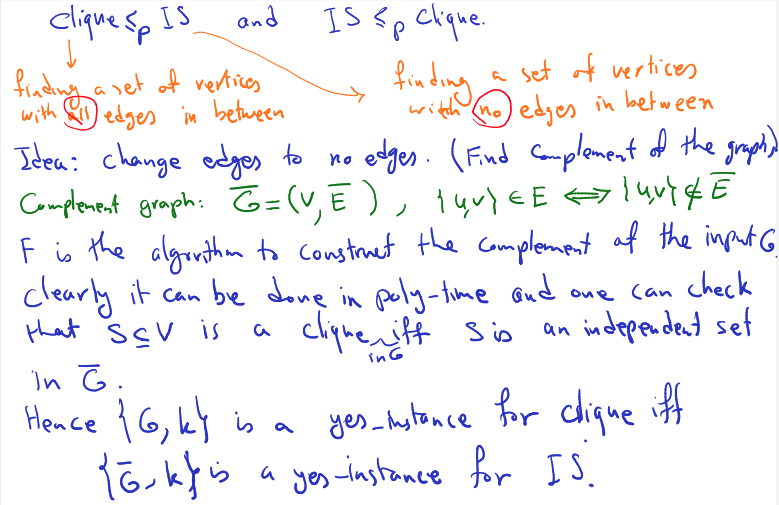 Clique ≤p IS and IS ≤p Clique.
finding a set of vertices
with all edges in between
finding a set of vertices
with no edges in between
Idea: change edges to no edges. (Find Complement of the graph)
Complement graph: G̅=(V, E̅), {u,v} ∈ E ⟺ {u,v} ∉ E̅
F is the algorithm to construct the complement of the input G.
Clearly it can be done in poly-time and one can check
that S⊆V is a clique in G iff S is an independent set
in G̅.
Hence {G, k} is a yes_instance for clique iff
{G̅, k} is a yes-instance for IS.